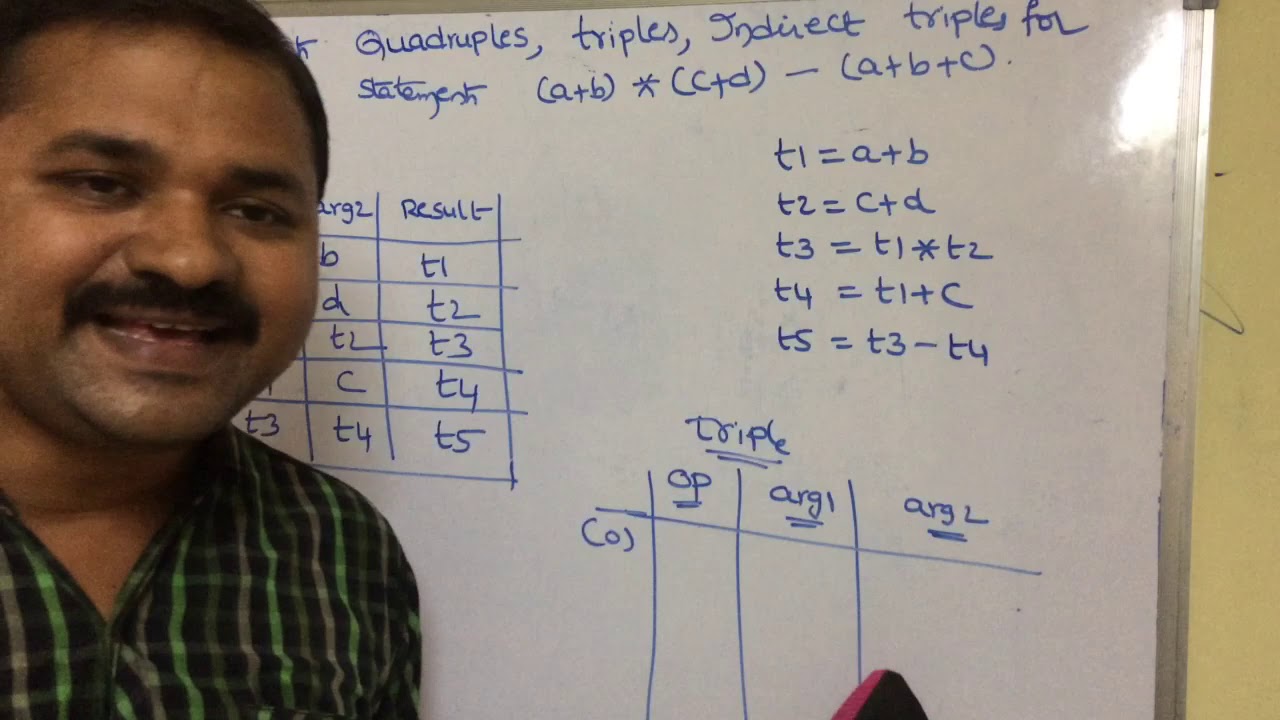 Quadruples, triples, Indirect triples for
statement (a+b) * (c+d) - (a+b+c).
t1 = a+b
t2 = c+d
t3 = t1*t2
t4 = t1+c
t5 = t3-t4
arg2 Result
b t1
d t2
t2 t3
c t4
t3 t4 t5
triple
op arg1 arg2
(0)